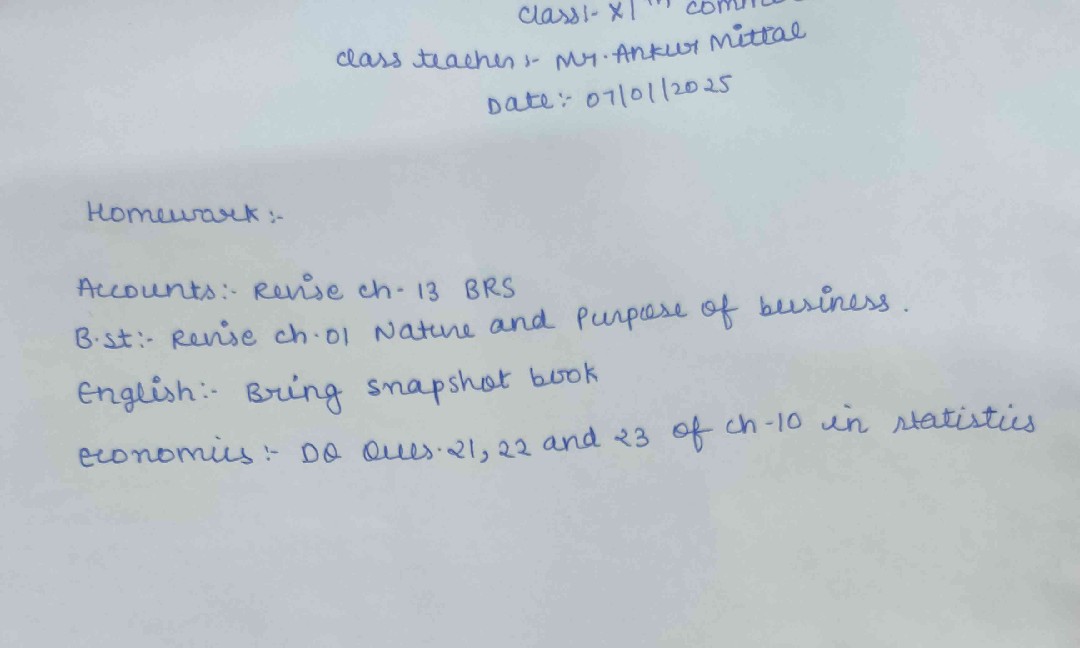 Class:- XIth
Class teacher :- Mr. Ankur Mittal
Date:- 07/01/2025
Homewark :-
Accounts:- Revise ch- 13 BRS
B.st:- Revise ch.01 Nature and Purpose of business.
English:- Bring snapshot book
economics :- DO Ques.21, 22 and 23 of ch-10 in statistics